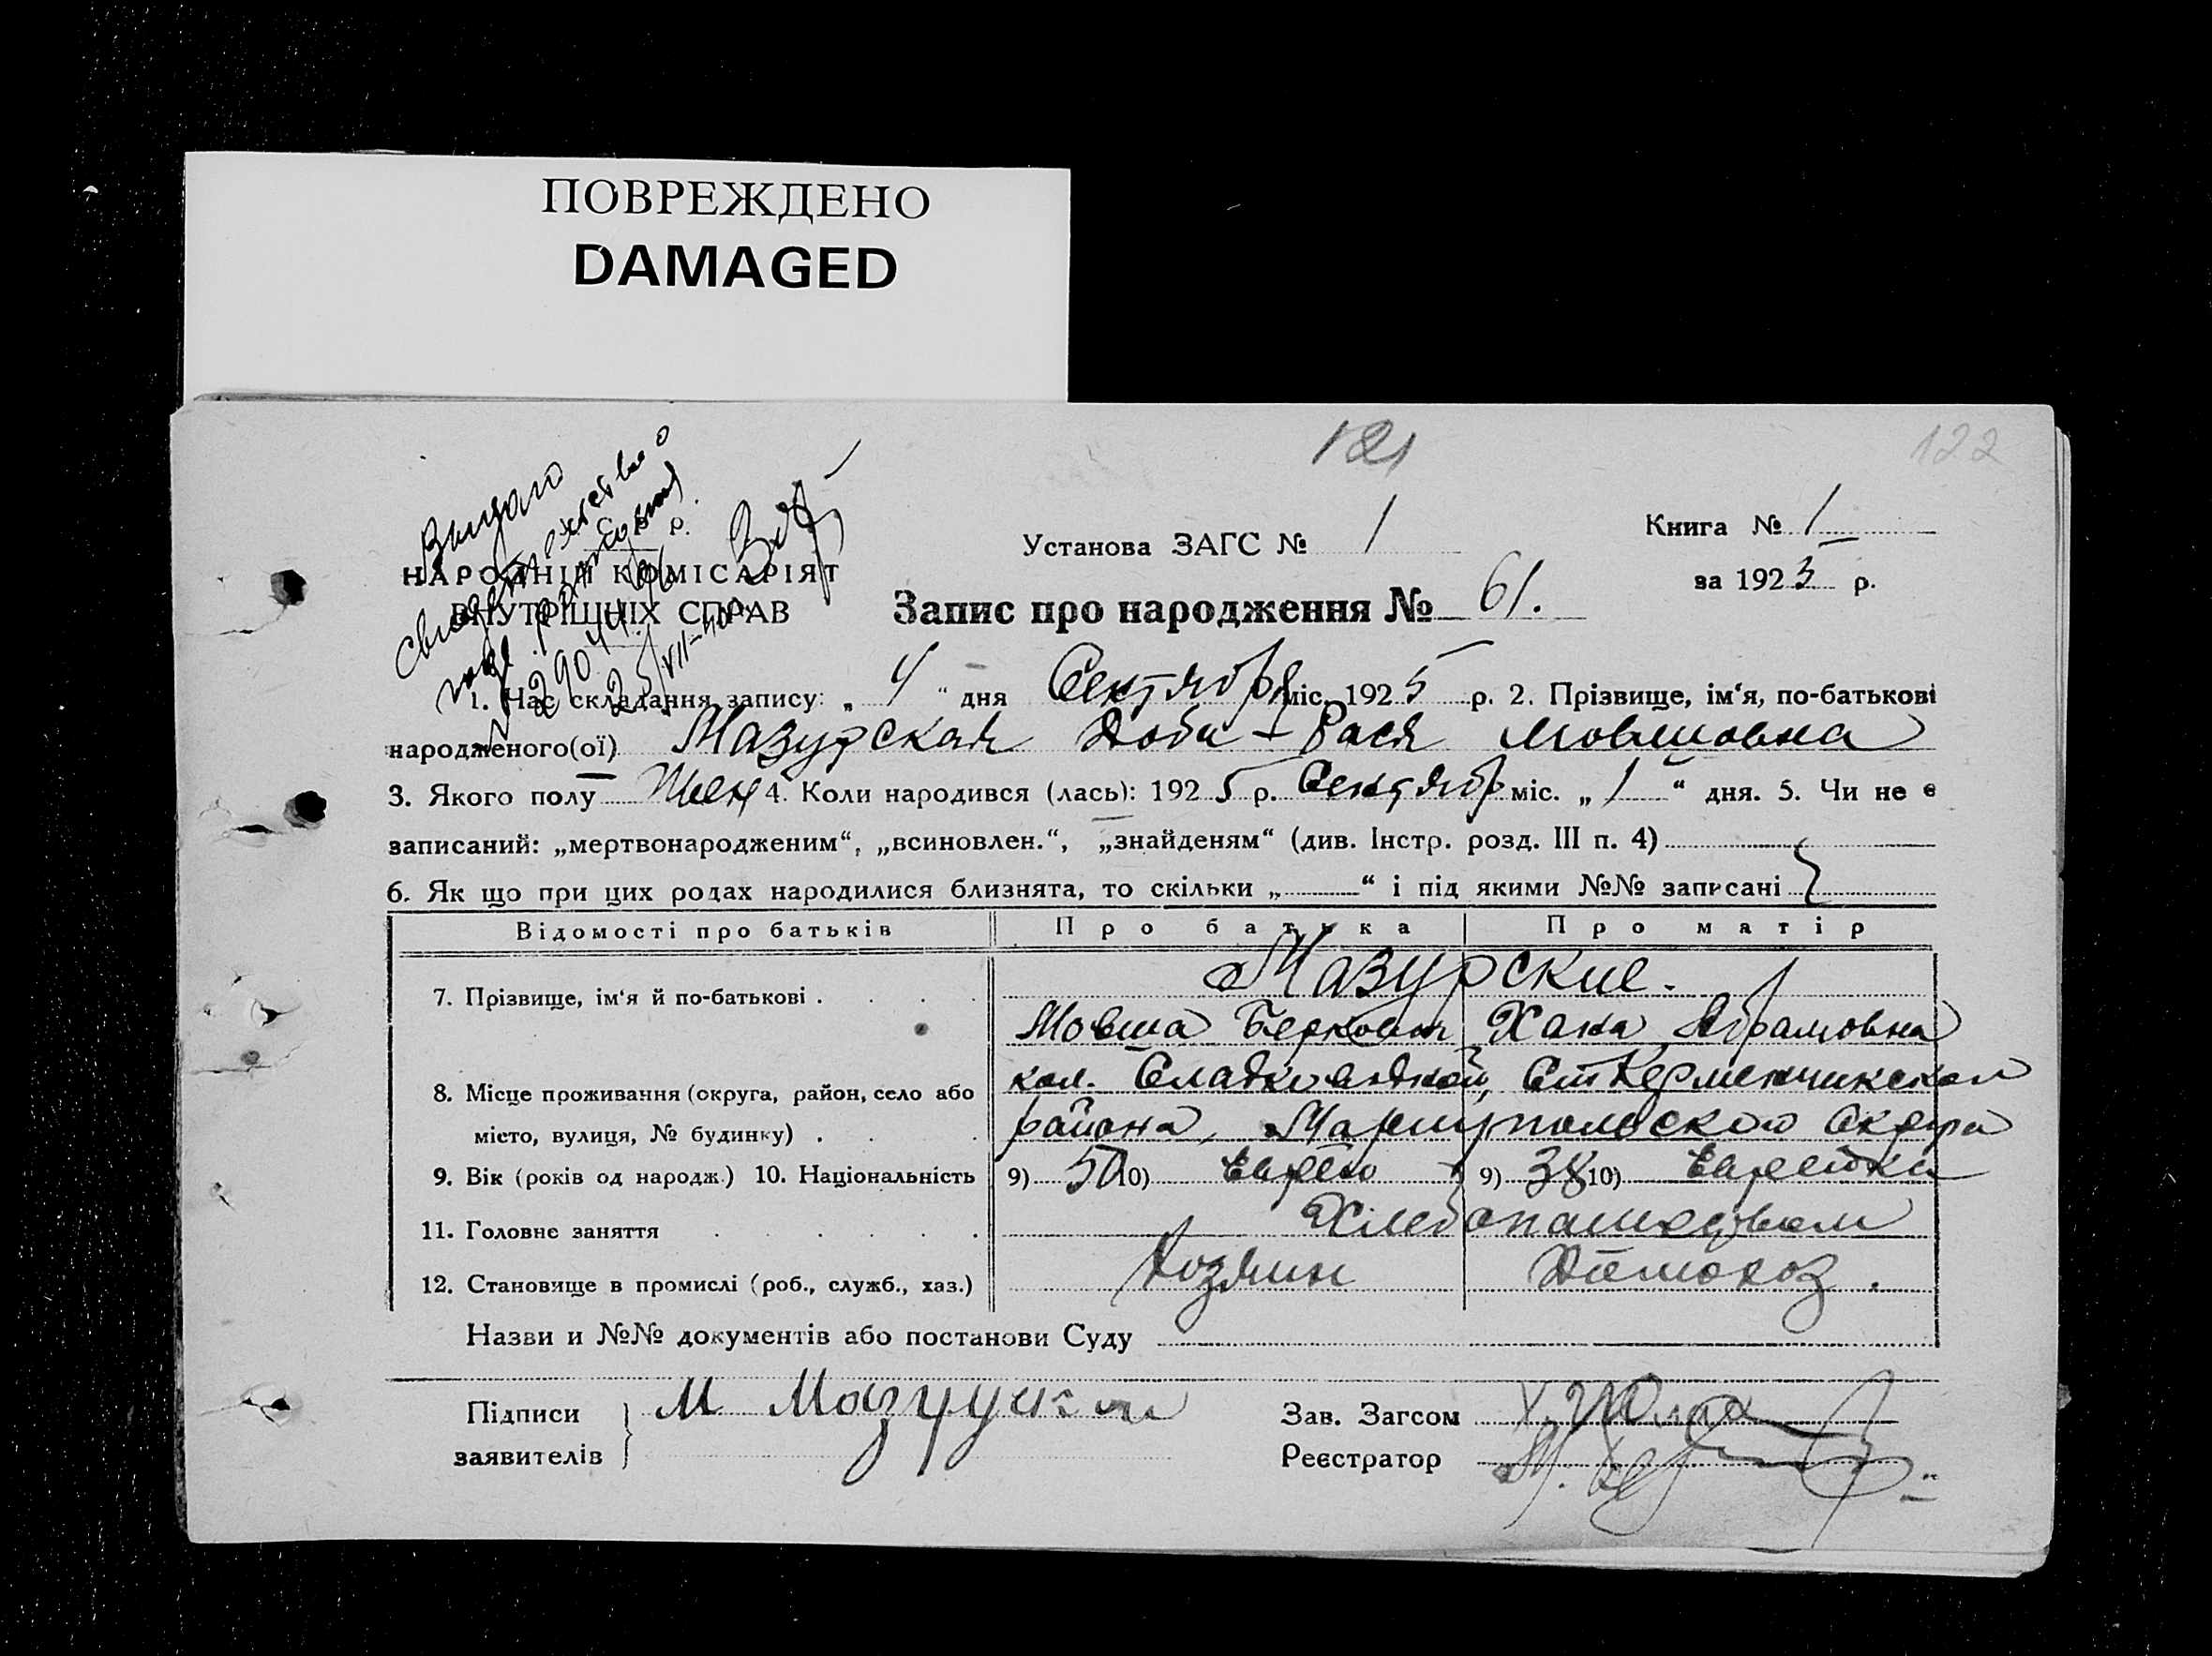 ПОВРЕЖДЕНО
DAMAGED
121
122
Видано
НАРОДНІЙ КОМІСАРІЯТ
ВНУТРІШНІХ СПРАВ
Установа ЗАГС № 1
Книга № 1
за 1925 р.
Запис про народження № 61.
1. Час складання запису: „ 4 “ дня Сентября міс. 1925 р. 2. Прізвище, ім‘я, по-батькові
народженого(ої) Мазурская Доба-Рася Мовшовна
3. Якого полу Жен 4. Коли народився (лась): 1925 р. Сентябр міс. „ 1 “ дня. 5. Чи не є
записаний: „мертвонародженим“, „всиновлен.“, „знайденям“ (див. Інстр. розд. III п. 4)
6. Як що при цих родах народилися близнята, то скільки „ “ і під якими №№ записані
Відомості про батьків Про батька Про матір
7. Прізвище, ім‘я й по-батькові . Мазурские.
Мовша Беркович Хана Абрамовна
8. Місце проживання (округа, район, село або кол. Сладководной, Ст Керменчикского
місто, вулиця, № будинку) . района, Мариупольского Округа
9. Вік (років од народж.) 10. Національність 9) 50 10) Еврей 9) 38 10) Еврейка
11. Головне заняття Хлебопашеством
12. Становище в промислі (роб., служб., хаз.) Хозяин Домохоз.
Назви и №№ документів або постанови Суду
Підписи
заявителів
М Мазурский
Зав. Загсом
Реєстратор